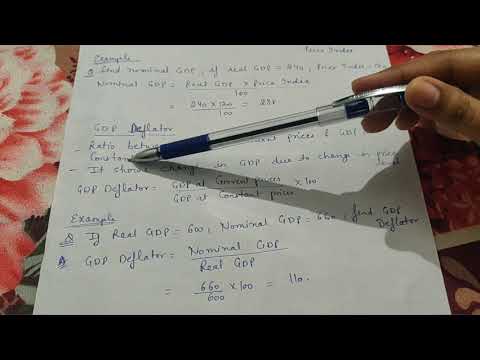 Price Index
Example
Q Find Nominal GDP, if Real GDP = 240, Price Index =
Nominal GDP = Real GDP × Price Index
100
= 240 × 120 = 288
100
GDP Deflator
- Ratio current prices & GDP
Constant
- It shows change in GDP due to change in price
GDP Deflator = GDP at Current prices × 100
GDP at Constant prices
Example
Q If Real GDP = 600, Nominal GDP = 660, find GDP
Deflator
A GDP Deflator = Nominal GDP
Real GDP
= 660 × 100 = 110.
600